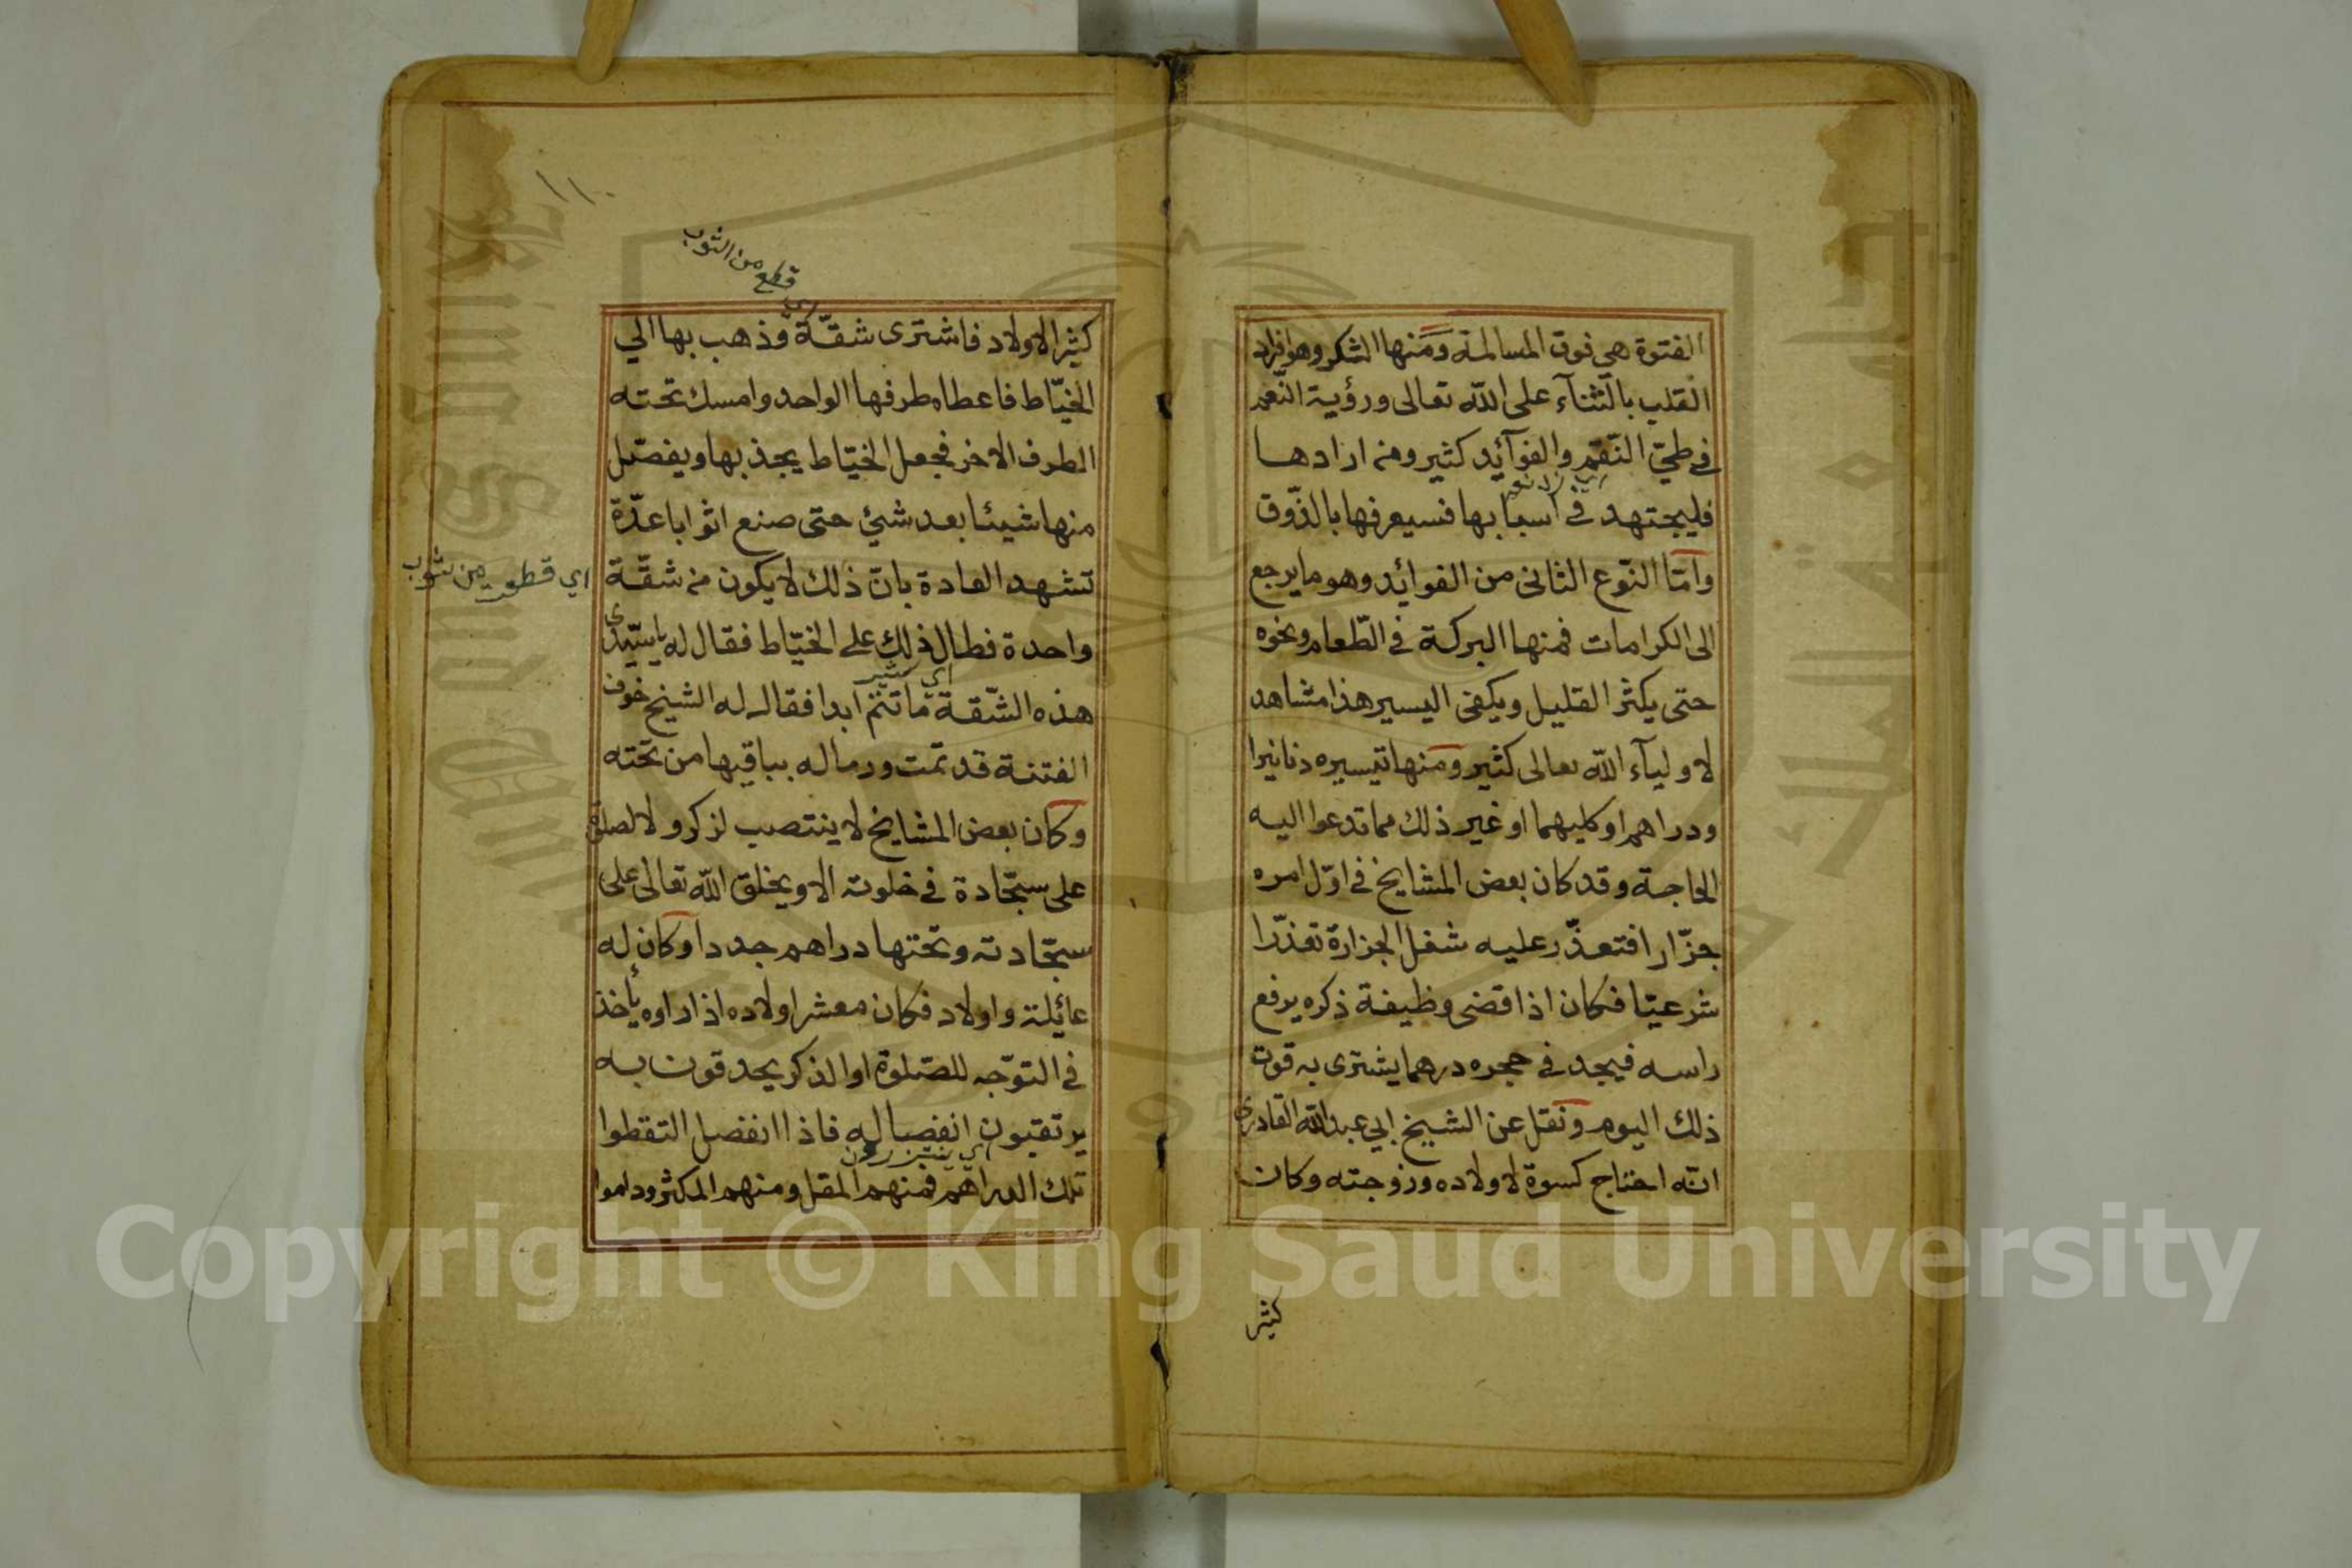 الفتوة هي فوق المسالمة ومنها الشكر وهو افراد
القلب بالثنآء على الله تعالى ورؤية النّعم
في طيّ النّقم والفوآئد كثيرة ومن ارادها
فليجتهد في اسبابها فسيعرفها بالذّوق
وامّا النّوع الثانى من الفوائد وهو ما يرجع
الى الكرامات فمنها البركة في الطّعام ونحوه
حتى يكثر القليل ويكفى اليسير هذا مشاهد
لاوليآء الله تعالى كثير ومنها تيسيره دنانيرا
ودراهم او كليهما او غير ذلك مما تدعوا اليه
الحاجة وقد كان بعض المشايخ في اوّل امره
جزّارا فتعذّر عليه شغل الجزارة تعذّرا
شرعيّا فكان اذا قضى وظيفة ذكره يرفع
راسه فيجد في حجره درهما يشترى به قوت
ذلك اليوم ونقل عن الشيخ ابي عبد الله القادرى
انّه احتاج كسوة لاولاده وزوجته وكان
كثير
١١٠
اي قطع من الثوب
كثير الاولاد فاشترى شقّة وذهب بها الي
الخيّاط فاعطاه طرفها الواحد وامسك تحته
الطرف الاخر فجعل الخيّاط يجذبها ويفصّل
منها شيئا بعد شئ حتى صنع اثوابا عدّة
تشهد العادة بانّ ذلك لا يكون من شقّة
اي قطعة من ثوب
واحدة فطال ذلك على الخيّاط فقال له يا سيّدى
هذه الشّقة ما تتم ابدا فقال له الشيخ خوف
الفتنة قد تمت ورما له بباقيها من تحته
وكان بعض المشايخ لا ينتصب لذكر ولا لصلوة
على سجّادة في خلوته الا ويخلق الله تعالى على
سجّادته وتحتها دراهم جددا وكان له
عائلة واولاد فكان معشر اولاده اذا راوه يأخذ
في التوجّه للصّلوة او الذكر يحدقون به
يرتقبون انفصاله فاذا انفصل التقطوا
اي ينتظرون
تلك الدراهم فمنهم المقل ومنهم المكثر وداموا
Copyright © King Saud University